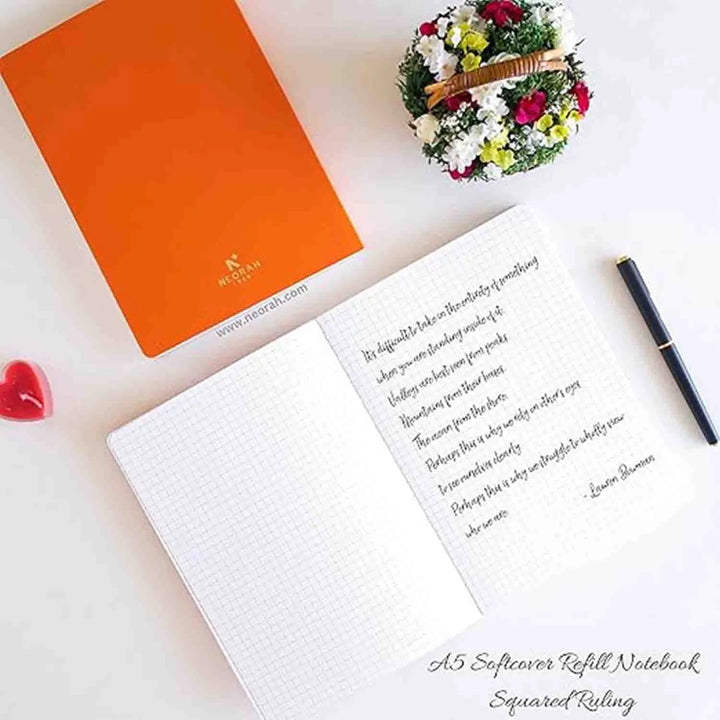 NEORAH
www.neorah.com
It's difficult to take in the entirety of something
when you are standing inside of it.
Valleys are best seen from peaks.
Mountains from their bases.
The ocean from the shore.
Perhaps this is why we rely on other's eyes
to see ourselves clearly.
Perhaps this is why we struggle to wholly view
who we are.
- Lauren Bowman
A5 Softcover Refill Notebook
Squared Ruling